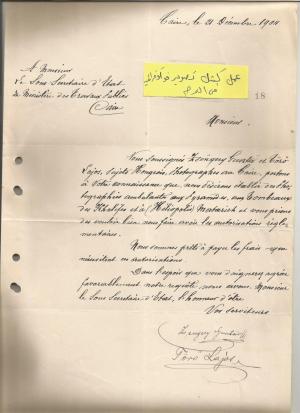 Caire, le 21 Décembre, 1904
A Monsieur
le Sous Secrétaire d'Etat
Ministère des Travaux Publics
Caire
عمل كشك تصوير فوتوغرافي
في الهرم
18
Monsieur,
Nous soussignés Zsengery Gusztáv et Törö
Lajos, Sujets Hongrois, Photographes au Caire, portons
à Votre connaissance que, nous désirons établir des Pho-
tographies ambulantes aux Pyramides, aux Tombeaux
des Khalifes et à (Héliopolis) Matarieh et vous prions
de vouloir bien nous faire avoir les autorisations régle-
mentaires.
Nous sommes prêts à payer les frais
autorisations.
Dans l'espoir que vous daignerez agréer
favorablement notre requête nous avons, Monsieur
le Sous Secrétaire d'Etat, l'honneur d'être
Vos serviteurs
Zsengery Gusztáv
Törö Lajos